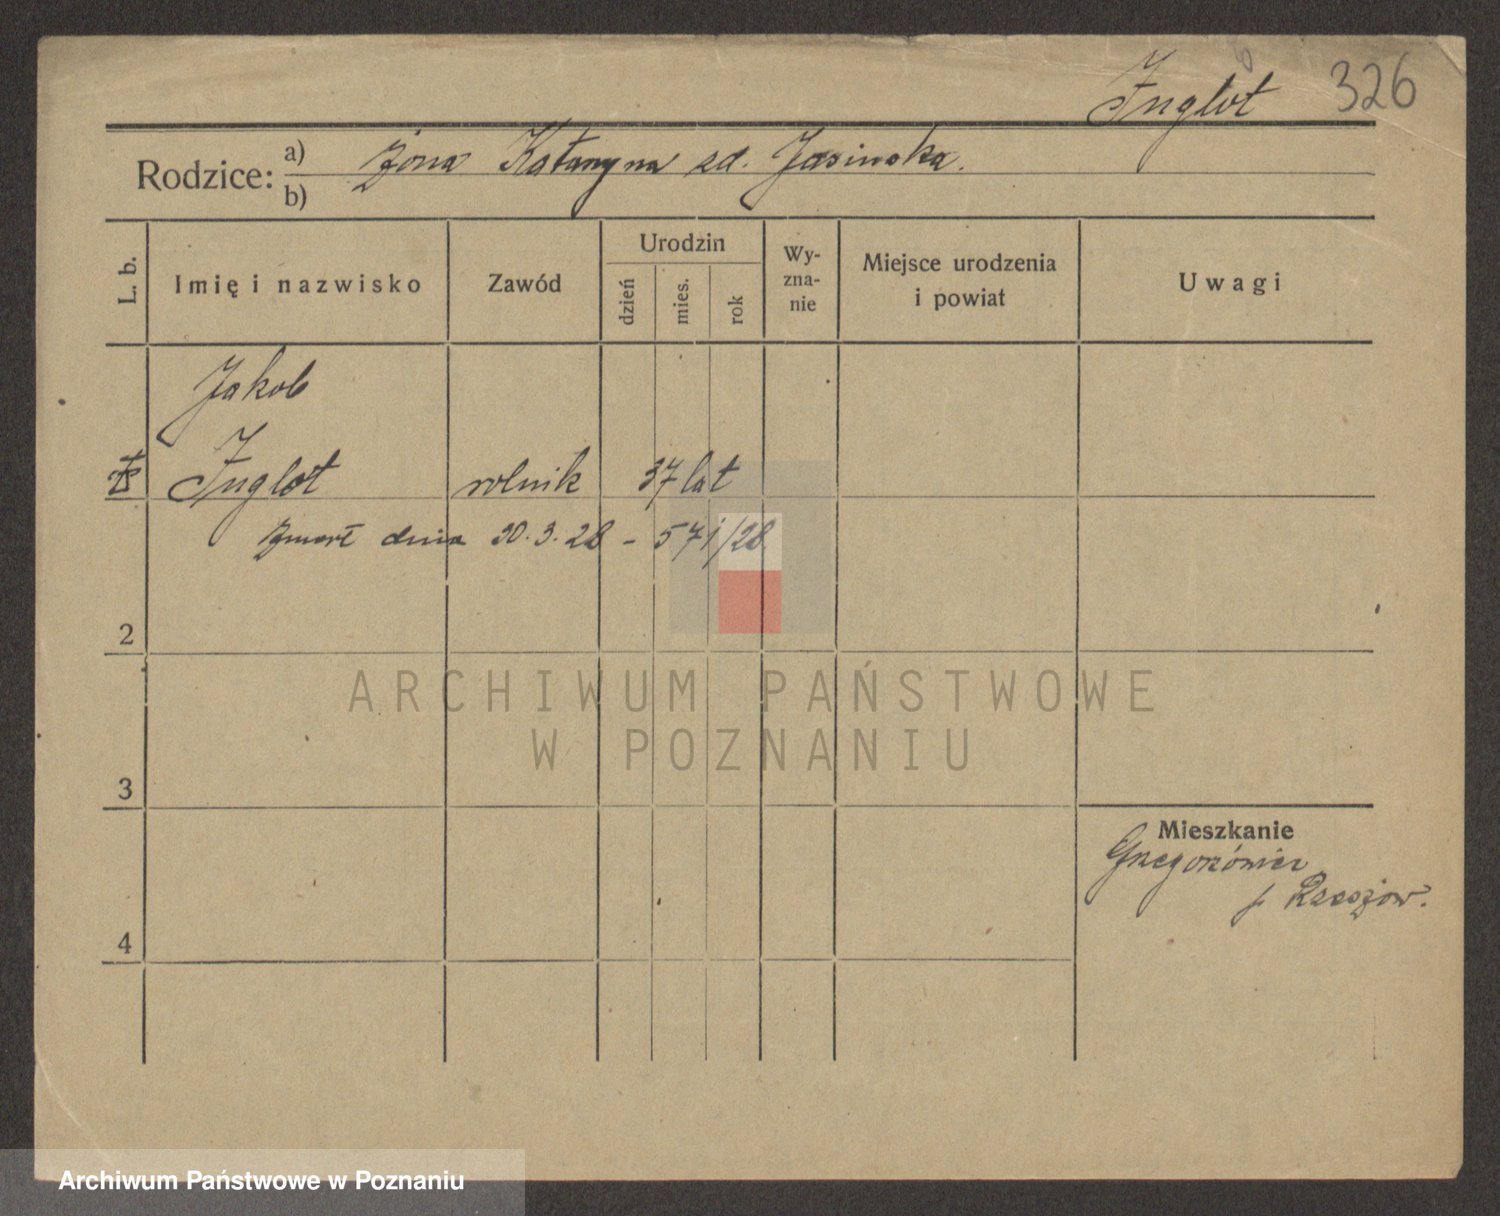 Inglot 326
Rodzice: a) żona Katarzyna zd. Jasinska.
b)
L. b. Imię i nazwisko Zawód Urodzin dzień mies. rok Wy-zna-nie Miejsce urodzenia i powiat Uwagi
Jakob
Inglot rolnik 37 lat
Zmarł dnia 30.3.28 - 571/28
2
3
Mieszkanie
p. Rzeszow.
4
ARCHIWUM PAŃSTWOWE
W POZNANIU
Archiwum Państwowe w Poznaniu